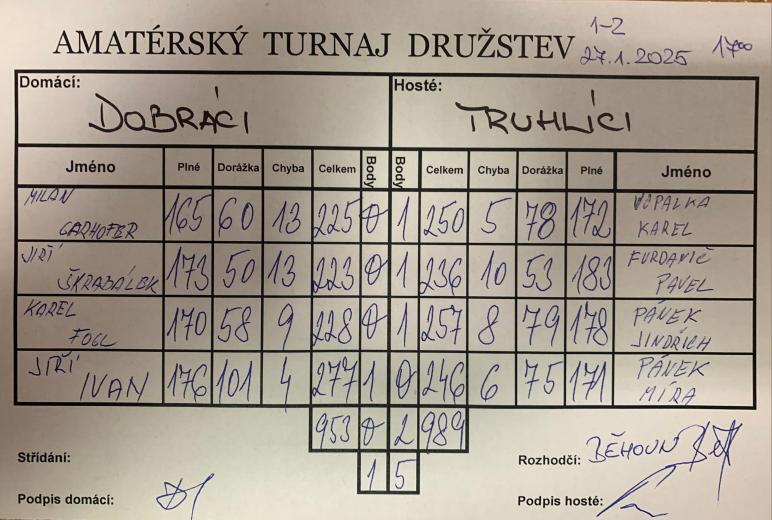 1-2
AMATÉRSKÝ TURNAJ DRUŽSTEV 27.1.2025 17⁰⁰
Domácí: Hosté:
DOBRÁCI TRUHLÍCI
Jméno Plné Dorážka Chyba Celkem Body Body Celkem Chyba Dorážka Plné Jméno
MILAN GARHOFER 165 60 13 225 0 1 250 5 78 172 VOPALKA KAREL
JIŘÍ ŠKRABÁLEK 173 50 13 223 0 1 236 10 53 183 FURDANIČ PAVEL
KAREL FOGL 170 58 9 228 0 1 257 8 79 178 PÁNEK JINDŘICH
JIŘÍ IVAN 176 101 4 277 1 0 246 6 75 171 PÁNEK MÍRA
953 0 2 989
1 5
Střídání: Rozhodčí: BĚHOUN
Podpis domácí: Podpis hosté: